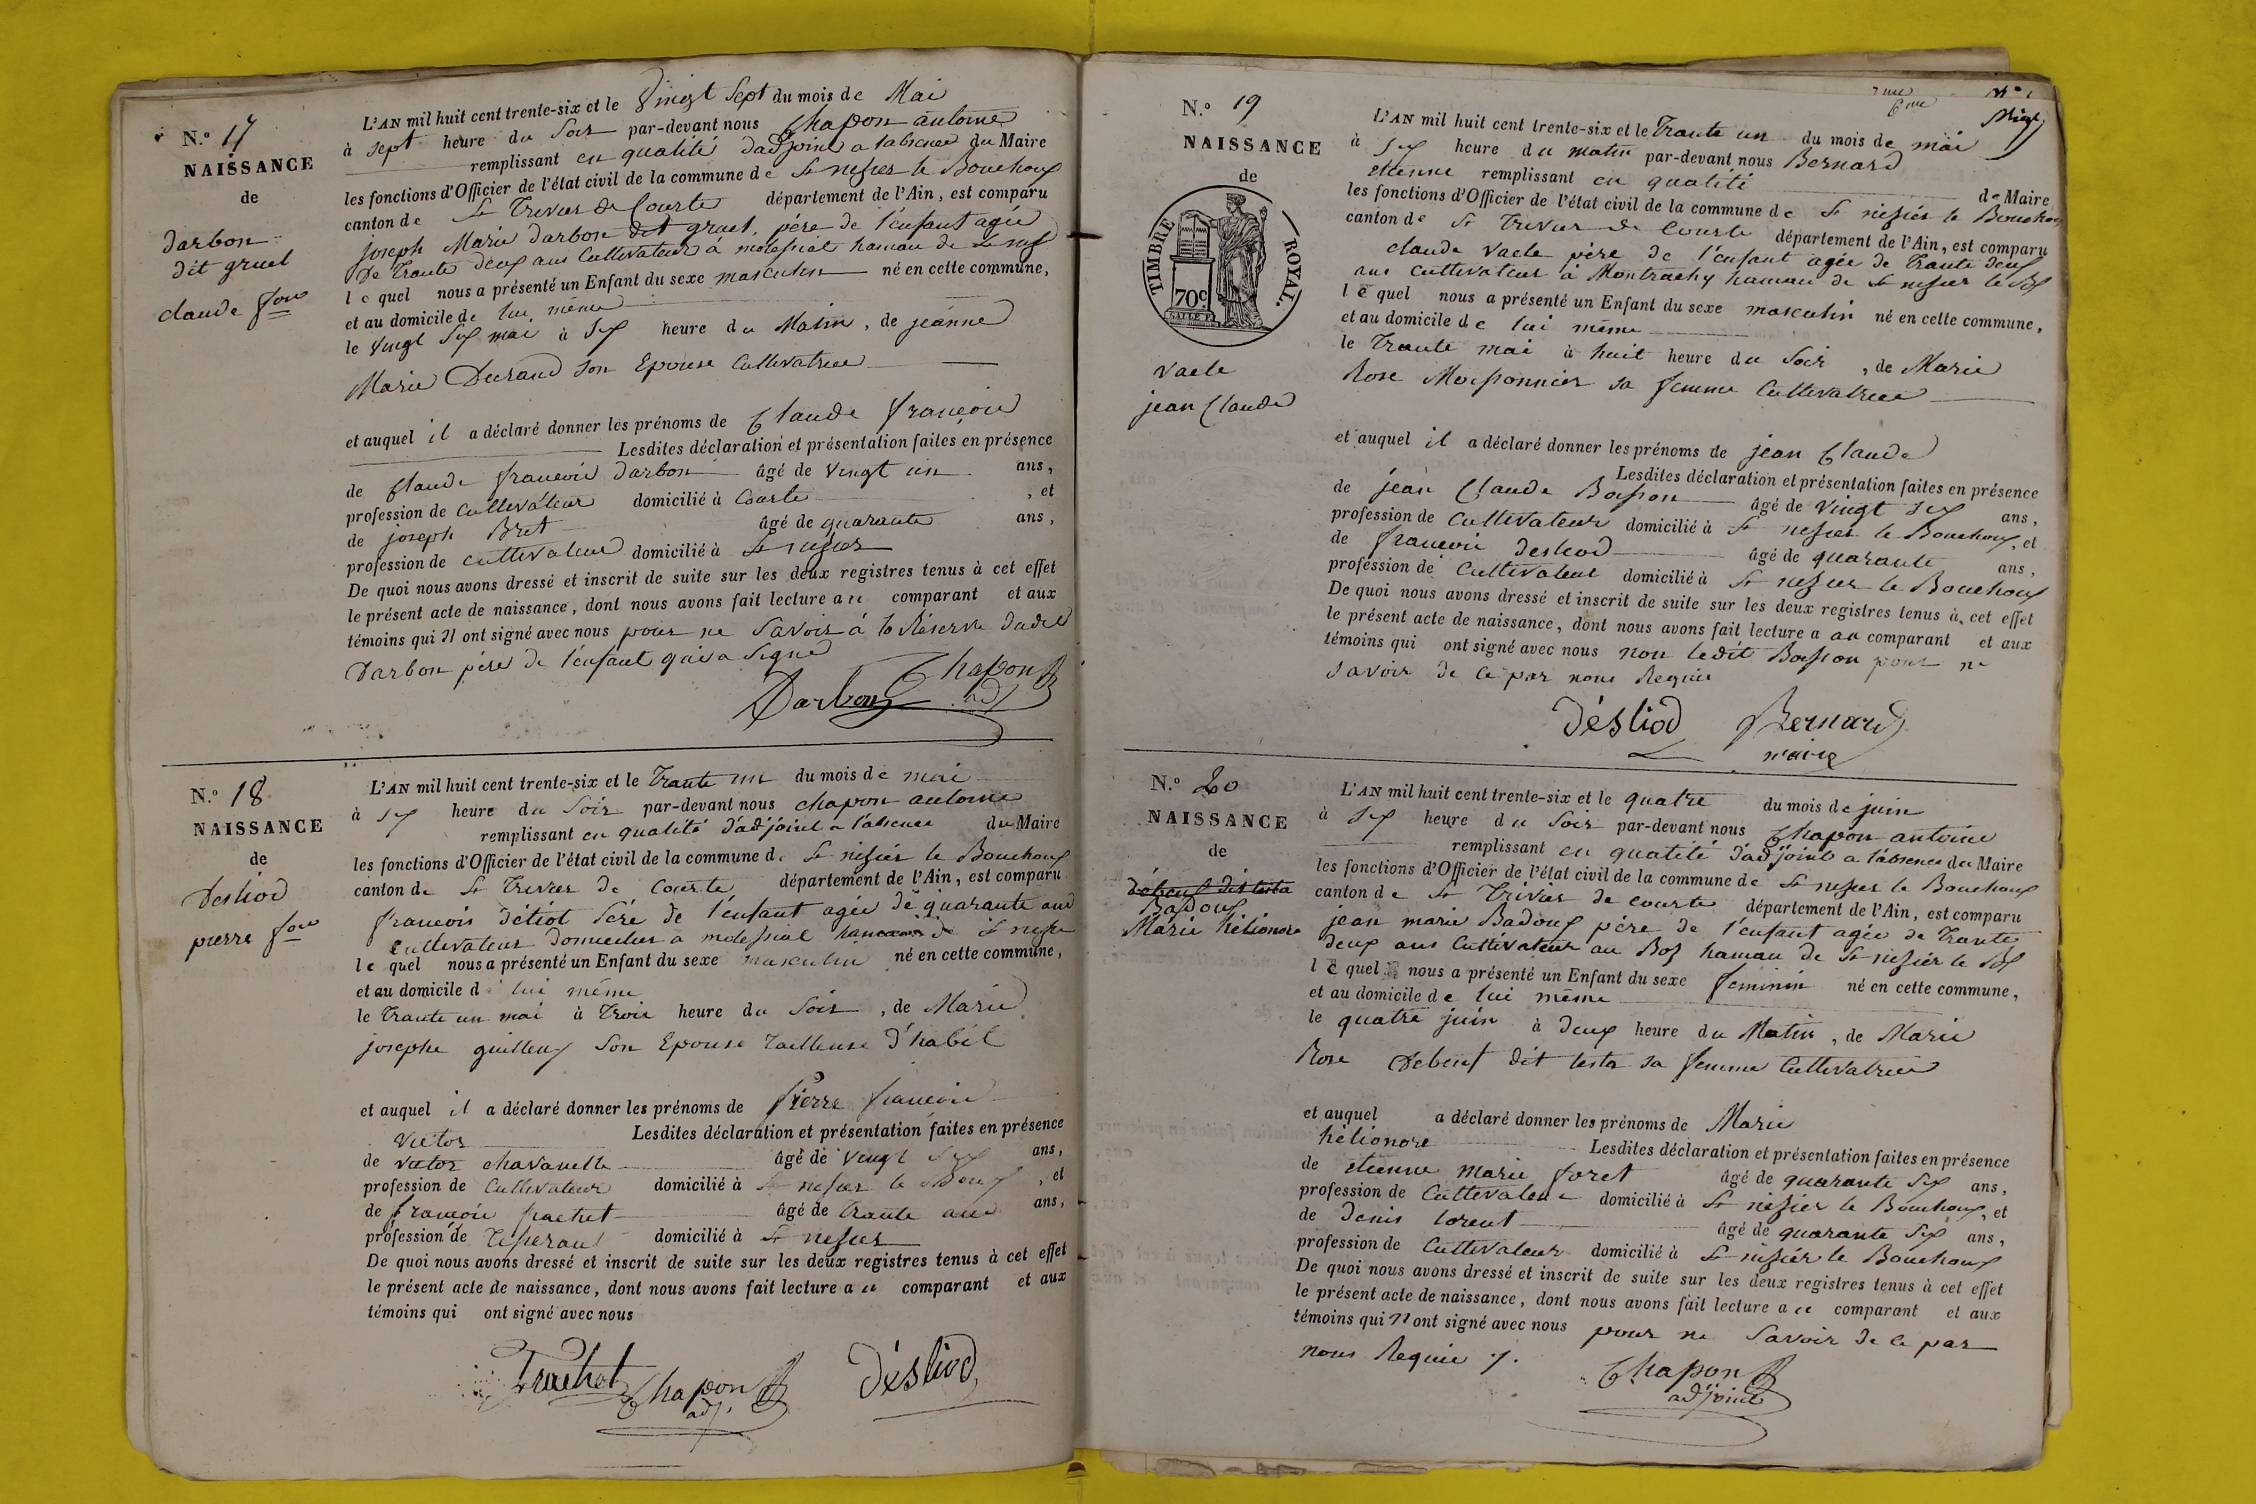 N.° 17
NAISSANCE
de
darbon
dit gruel
claude fois
L'AN mil huit cent trente-six et le vingt sept du mois de Mai
à sept heure du Soir par-devant nous Chapon antoine
remplissant en qualité d'adjoint a l'absence du Maire
les fonctions d'Officier de l'état civil de la commune de St nisier le Bouchoux
canton de St Trivier de Courte département de l'Ain, est comparu
joseph Marie darbon dit gruel, pére de l'enfant agée
De Trante deux ans Cultivateur á molessiat hamau de St nisier
lequel nous a présenté un Enfant du sexe masculin né en cette commune,
et au domicile de lui même
le vingt six mai à six heure du Matin, de jeanne
Marie Durand son Epouse Cultivatrice
et auquel il a déclaré donner les prénoms de Claude françois
Lesdites déclaration et présentation faites en présence
de Claude francois darbon âgé de vingt un ans,
profession de Cultivateur domicilié à Courte , et
de joseph Bret âgé de quarante ans,
profession de cultivateur domicilié à St nisier
De quoi nous avons dressé et inscrit de suite sur les deux registres tenus à cet effet
le présent acte de naissance, dont nous avons fait lecture au comparant et aux
témoins qui n ont signé avec nous pour ne Savoir á la Réserve dudit
Darbon pére de l'enfant qui a Signé
Chapon
Darbon adj
N.° 18
NAISSANCE
de
Desliod
pierre fois
L'AN mil huit cent trente-six et le Trante un du mois de mai
à six heure du Soir par-devant nous chapon antoine
remplissant en qualité d'adjoint a l'absence du Maire
les fonctions d'Officier de l'état civil de la commune de St nisiér le Bouchoux
canton de St Trivier de Courte département de l'Ain, est comparu
francois détiot Pére de l'enfant agée de quarante ans
Cultivateur domicilier a molessiat hamau de St nisier
lequel nous a présenté un Enfant du sexe masculin né en cette commune,
et au domicile de lui même
le Trante un mai à Trois heure du Soir, de Marie
josephe guilleux Son Epouse Tailleuse d'habit
et auquel il a déclaré donner les prénoms de Pierre francois
Victor Lesdites déclaration et présentation faites en présence
de victor chavanelle âgé de vingt six ans,
profession de Cultivateur domicilié à St nisier le Boux , et
de françois frachet âgé de trante ans ans,
profession de Tisserant domicilié à St nisier
De quoi nous avons dressé et inscrit de suite sur les deux registres tenus à cet effet
le présent acte de naissance, dont nous avons fait lecture au comparant et aux
témoins qui ont signé avec nous
Frachet Chapon désliod
adj.
N.° 19
NAISSANCE
de
TIMBRE ROYAL.
70c
vacle
jean Claude
L'AN mil huit cent trente-six et le Trante un du mois de mai
à six heure du matin par-devant nous Bernard
etienne remplissant en qualité de Maire
les fonctions d'Officier de l'état civil de la commune de St nisiér le Bouchoux
canton de St Trivier de Courte département de l'Ain, est comparu
claude vacle pére de l'enfant agée de Trante deux
ans Cultivateur á Montrachy hamau de St nisier le Bx
lequel nous a présenté un Enfant du sexe masculin né en cette commune,
et au domicile de lui même
le Trante mai à huit heure du Soir, de Marie
Rose Moissonnier sa femme Cultivatrice
et auquel il a déclaré donner les prénoms de jean Claude
Lesdites déclaration et présentation faites en présence
de jean Claude Boisson âgé de vingt six ans,
profession de Cultivateur domicilié à St nisier le Bouchoux, et
de francois desliod âgé de quarante ans,
profession de Cultivateur domicilié à St nisier le Bouchoux
De quoi nous avons dressé et inscrit de suite sur les deux registres tenus à cet effet
le présent acte de naissance, dont nous avons fait lecture a au comparant et aux
témoins qui ont signé avec nous non ledit Boisson pour ne
savoir de ce par nous Requis
désliod Bernard
maire
N.° 20
NAISSANCE
de
débeuf dit testa
Badoux
Marie hélionore
L'AN mil huit cent trente-six et le quatre du mois de juin
à six heure du Soir par-devant nous Chapon antoine
remplissant en qualité d'adjoint a l'absence du Maire
les fonctions d'Officier de l'état civil de la commune de St nisier le Bouchoux
canton de St Trivier de courte département de l'Ain, est comparu
jean marie Badoux pére de l'enfant agée de Trante
deux ans Cultivateur au Boz hamau de St nisiér le Bx
lequel nous a présenté un Enfant du sexe féminin né en cette commune,
et au domicile de lui même
le quatre juin à deux heure du Matin, de Marie
Rose Debeuf dit testa sa femme Cultivatrice
et auquel a déclaré donner les prénoms de Marie
hélionore Lesdites déclaration et présentation faites en présence
de etienne marie foret âgé de quarante six ans,
profession de Cultivateur domicilié à St nisiér le Bouchoux, et
de denis lorent âgé de quarante six ans,
profession de Cultivateur domicilié à St nisiér le Bouchoux
De quoi nous avons dressé et inscrit de suite sur les deux registres tenus à cet effet
le présent acte de naissance, dont nous avons fait lecture au comparant et aux
témoins qui n ont signé avec nous pour ne Savoir de ce par
nous Requis
Chapon
adjoint